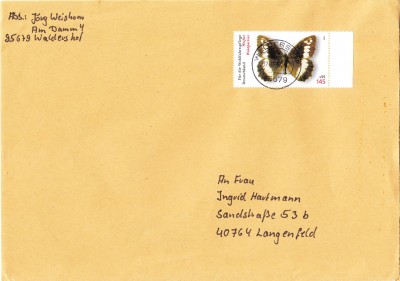 Abs.: Jörg Weishorn
Am Damm 4
95679 Waldershof
Für die Wohlfahrtspflege
Deutschland
145
An Frau
Ingrid Hartmann
Sandstraße 53 b
40764 Langenfeld